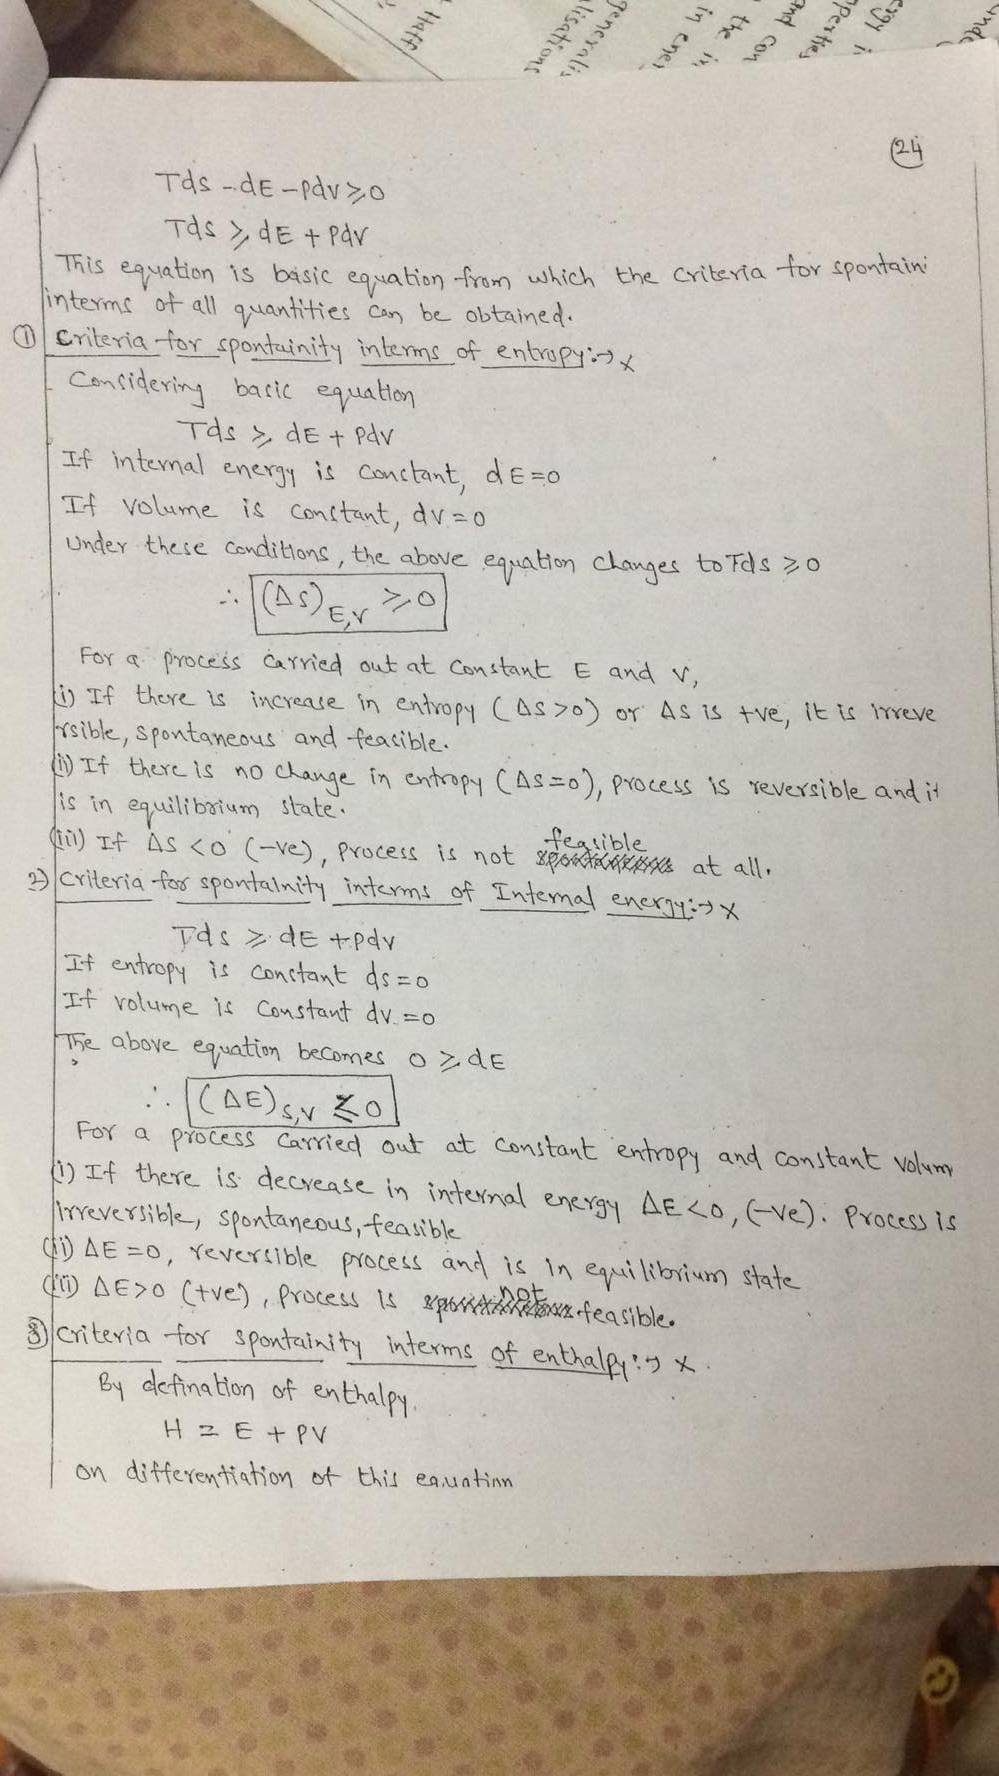 Haff
lisations
generalis
in ener
the in
and con
perties
ergy i
unde
24
Tds - dE - Pdv ⩾ 0
Tds ⩾ dE + Pdv
This equation is basic equation from which the criteria for spontaini
interms of all quantities can be obtained.
① Criteria for spontainity interms of entropy:→ x
Considering basic equation
Tds ⩾ dE + Pdv
If internal energy is constant, dE=0
If volume is constant, dv=0
Under these conditions, the above equation changes to Tds ⩾ 0
∴ (ΔS)E,V ⩾ 0
For a process carried out at constant E and V,
(i) If there is increase in entropy (ΔS>0) or ΔS is +ve, it is irreve
rsible, spontaneous and feasible.
(ii) If there is no change in entropy (ΔS=0), process is reversible and it
is in equilibrium state.
(iii) If ΔS <0 (-ve), process is not feasible at all.
2) Criteria for spontainity interms of Internal energy:→ x
Tds ⩾ dE + Pdv
If entropy is constant ds=0
If volume is constant dv=0
The above equation becomes 0 ⩾ dE
∴ (ΔE)S,V ⩽ 0
For a process carried out at constant entropy and constant volum
(i) If there is decrease in internal energy ΔE<0, (-ve). Process is
irreversible, spontaneous, feasible
(ii) ΔE=0, reversible process and is in equilibrium state
(iii) ΔE>0 (+ve), process is not feasible.
③ Criteria for spontainity interms of enthalpy:→ x.
By defination of enthalpy.
H = E + PV
on differentiation of this equation